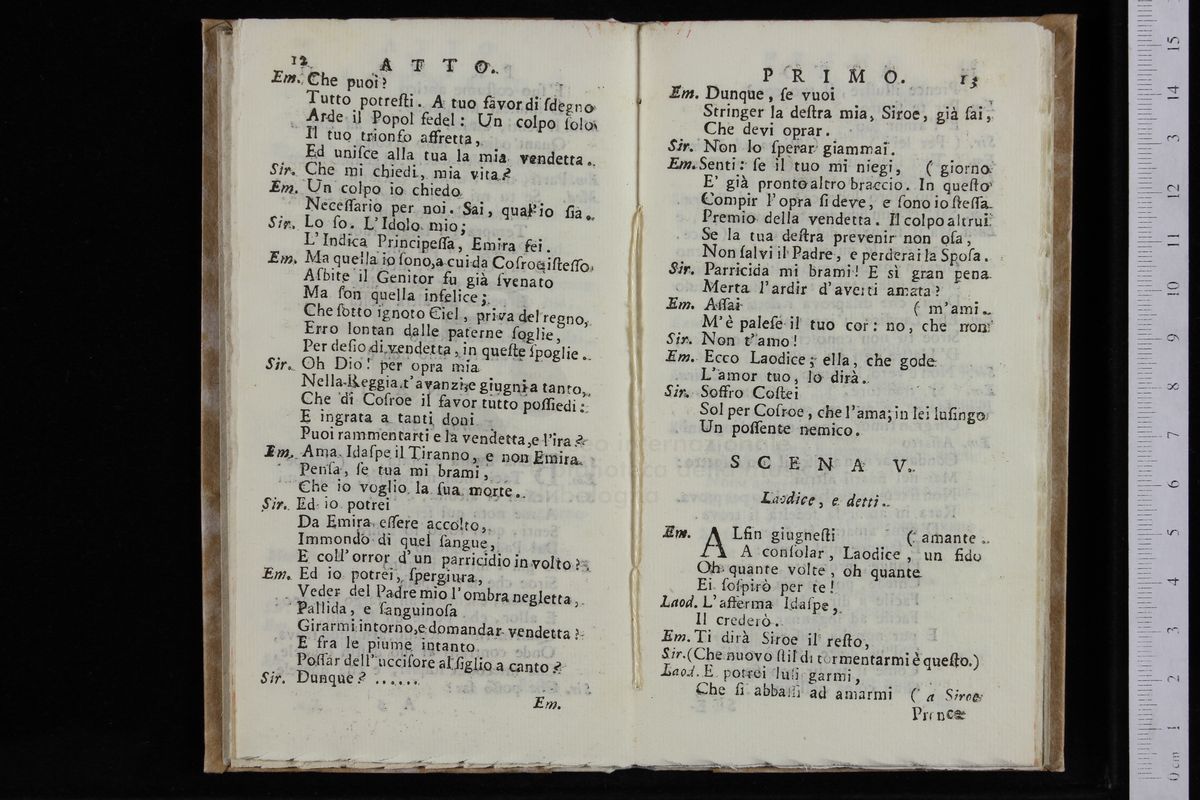 12 ATTO.
Em. Che puoi?
Tutto potreſti. A tuo favor di ſdegno
Arde il Popol fedel: Un colpo ſolo
Il tuo trionfo affretta,
Ed uniſce alla tua la mia vendetta.
Sir. Che mi chiedi, mia vita?
Em. Un colpo io chiedo
Neceſſario per noi. Sai, qual'io ſia.
Sir. Lo ſo. L'Idolo mio;
L'Indica Principeſſa, Emira ſei.
Em. Ma quella io ſono, a cui da Coſroe iſteſſo
Aſbite il Genitor fu già ſvenato
Ma ſon quella infelice;
Che ſotto ignoto Ciel, priva del regno,
Erro lontan dalle paterne ſoglie,
Per deſio di vendetta, in queſte ſpoglie.
Sir. Oh Dio! per opra mia
Nella Reggia t'avanzi, e giugni a tanto,
Che di Coſroe il favor tutto poſſiedi:
E ingrata a tanti doni
Puoi rammentarti e la vendetta, e l'ira?
Em. Ama Idaſpe il Tiranno, e non Emira.
Penſa, ſe tua mi brami,
Che io voglio la ſua morte.
Sir. Ed io potrei
Da Emira eſſere accolto,
Immondo di quel ſangue,
E coll'orror d'un parricidio in volto?
Em. Ed io potrei, ſpergiura,
Veder del Padre mio l'ombra negletta,
Pallida, e ſanguinoſa
Girarmi intorno, e domandar vendetta?
E fra le piume intanto
Poſſar dell'ucciſore al figlio a canto?
Sir. Dunque? ......
Em.
PRIMO. 13
Em. Dunque, ſe vuoi
Stringer la deſtra mia, Siroe, già ſai,
Che devi oprar.
Sir. Non lo ſperar giammai.
Em. Senti: ſe il tuo mi niegi, ( giorno
E' già pronto altro braccio. In queſto
Compir l'opra ſi deve, e ſono io ſteſſa
Premio della vendetta. Il colpo altrui
Se la tua deſtra prevenir non oſa,
Non ſalvi il Padre, e perderai la Spoſa.
Sir. Parricida mi brami! E sì gran pena
Merta l'ardir d'averti amata?
Em. Aſſai ( m'ami.
M'è paleſe il tuo cor: no, che non
Sir. Non t'amo!
Em. Ecco Laodice; ella, che gode
L'amor tuo, lo dirà.
Sir. Soffro Coſtei
Sol per Coſroe, che l'ama; in lei luſingo
Un poſſente nemico.
SCENA V.
Laodice, e detti.
Em. ALfin giugneſti ( amante.
A conſolar, Laodice, un fido
Oh quante volte, oh quante
Ei ſoſpirò per te!
Laod. L'afferma Idaſpe,
Il crederò.
Em. Ti dirà Siroe il reſto,
Sir. (Che nuovo ſtil di tormentarmi è queſto.)
Laod. E potrei luſi garmi,
Che ſi abbaſſi ad amarmi ( a Siroe
Prence